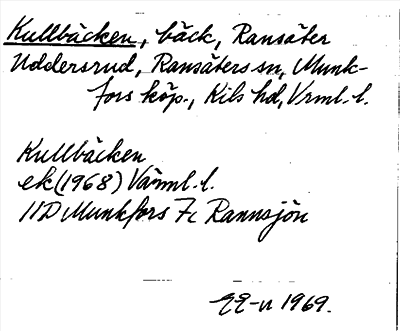 Kullbäcken, bäck, Ransäter
Uddersrud, Ransäters sn, Munk-
fors köp., Kils hd, Vrml. l.
Kullbäcken
ek (1968) Värml. l.
11D Munkfors 7c Rannsjön
1969.